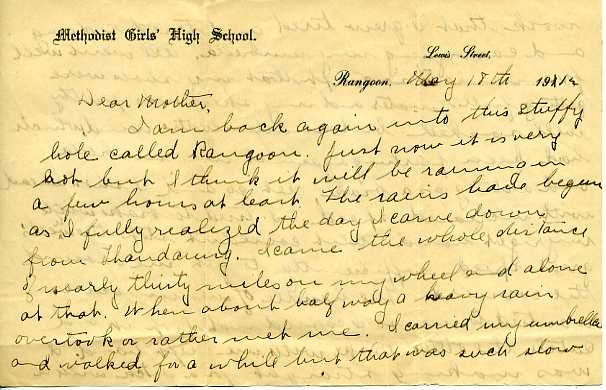 Methodist Girls' High School.
Lewis Street,
Rangoon, May 18th 191
Dear Mother,
I am back again into this stuffy
hole called Rangoon. Just now it is very
hot but I think it will be raining in
a few hours at least. The rains have begun
as I fully realized the day I came down
from Thandaung. I came the whole distance
of nearly thirty miles on my wheel and alone
at that. When about half way a heavy rain
overtook or rather met me. I carried my umbrella
and walked for a while but that was such slow